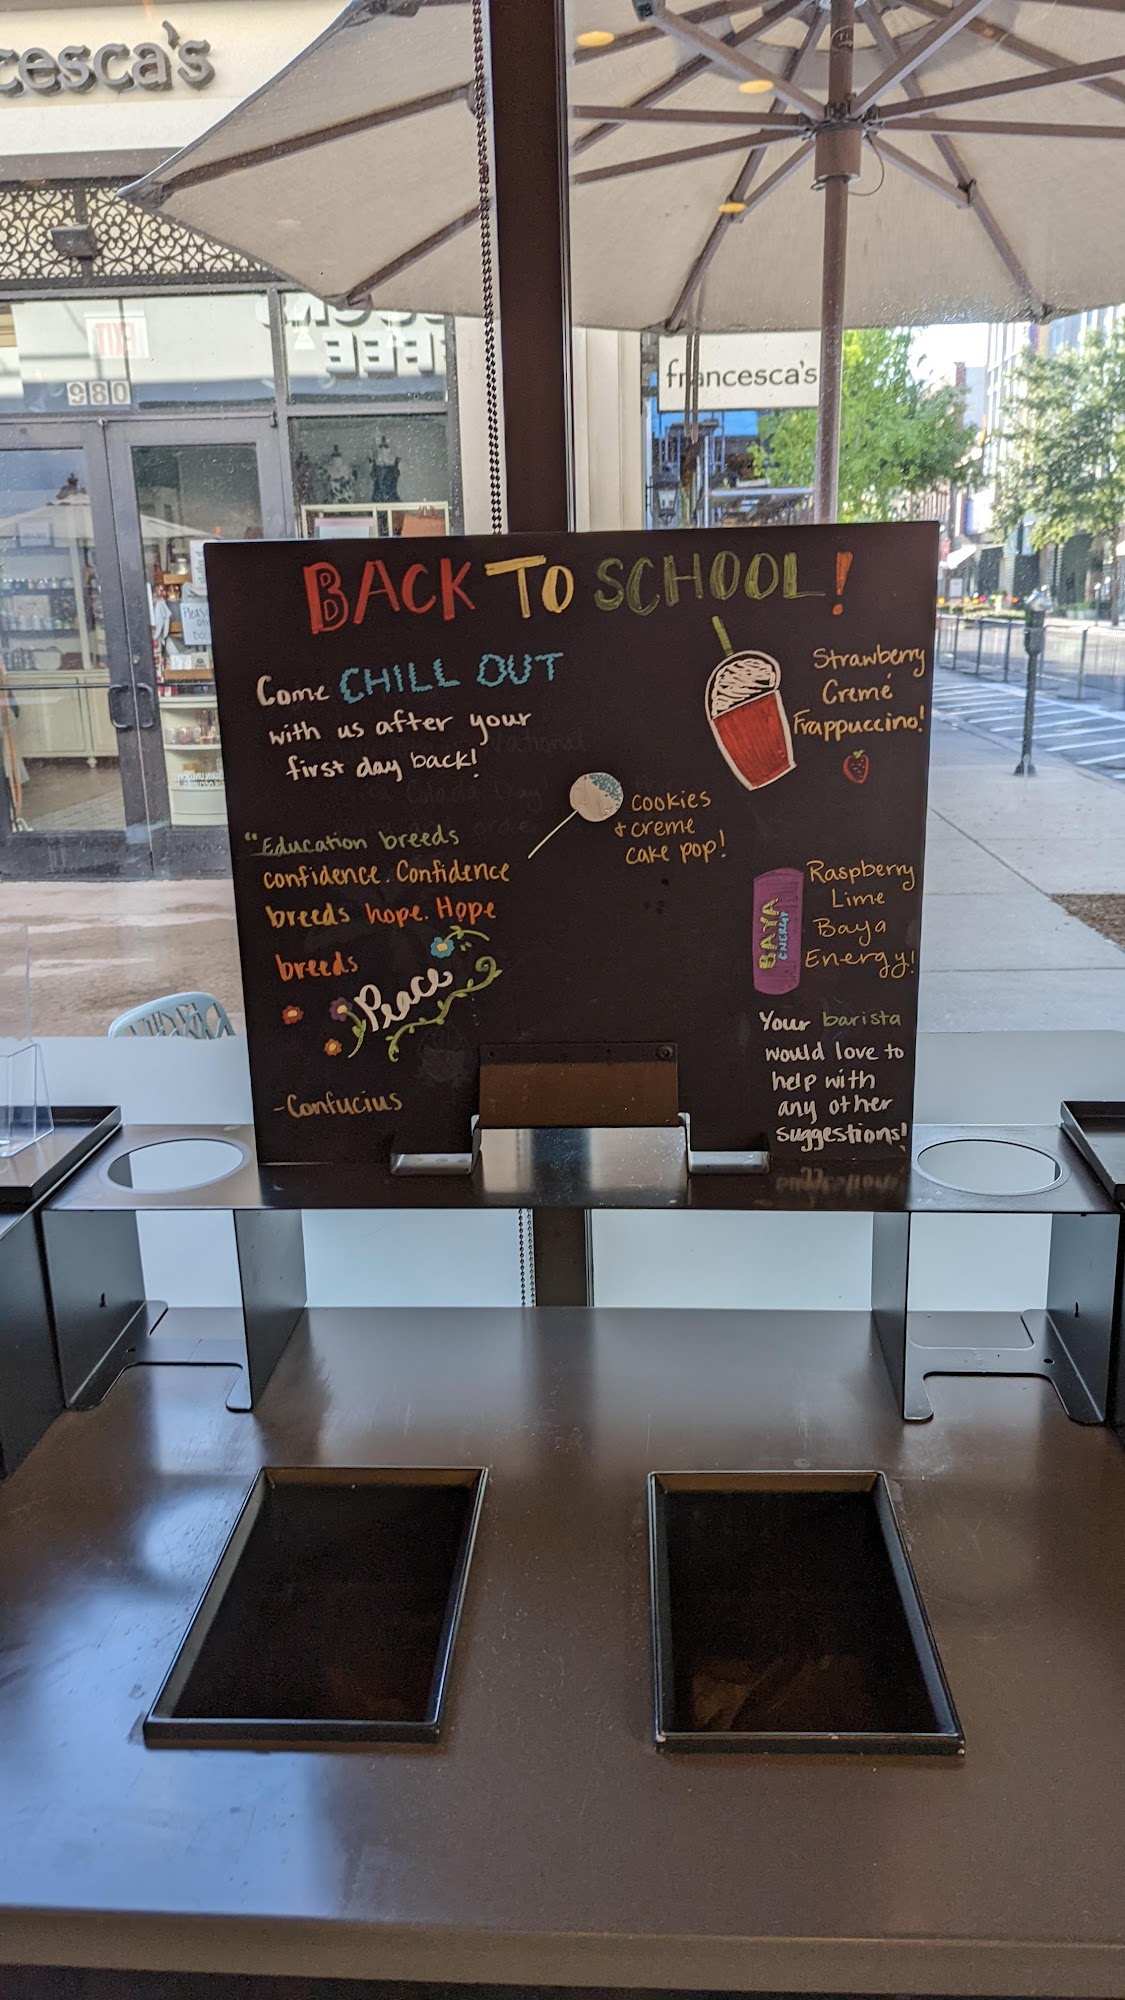 cesca's
EXIT
980
francesca's
BACK TO SCHOOL!
Come CHILL OUT
with us after your
first day back!
"Education breeds
confidence. Confidence
breeds hope. Hope
breeds
Peace
-Confucius
Strawberry
Creme
Frappuccino!
cookies
+ creme
cake pop!
BAYA
ENERGY
Raspberry
Lime
Baya
Energy!
Your barista
would love to
help with
any other
suggestions!